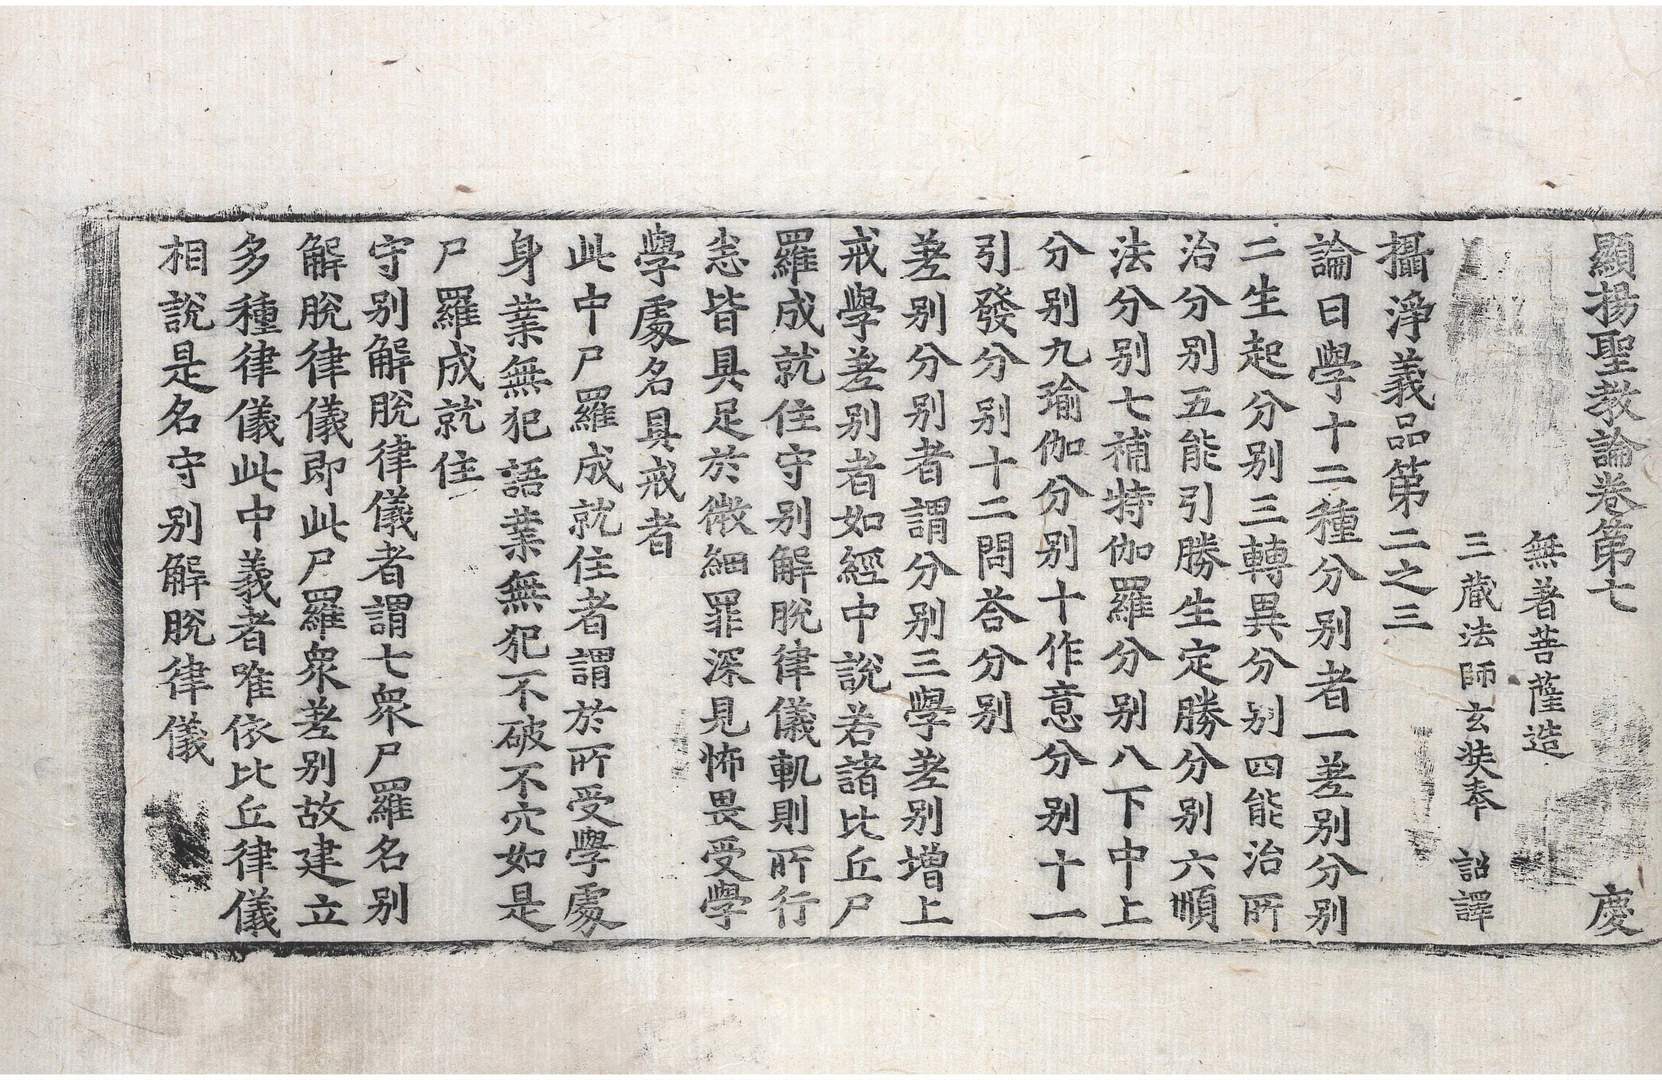 顯揚聖教論卷第七 慶
無著菩薩造
三藏法師玄奘奉 詔譯
攝淨義品第二之三
論曰學十二種分別者一差別分別
二生起分別三轉異分別四能治所
治分別五能引勝生定勝分別六順
法分別七補特伽羅分別八下中上
分別九瑜伽分別十作意分別十一
引發分別十二問荅分別
差別分別者謂分別三學差別增上
戒學差別者如經中說若諸比丘尸
羅成就住守別解脫律儀軌則所行
悉皆具足於微細罪深見怖畏受學
學處名具戒者
此中尸羅成就住者謂於所受學處
身業無犯語業無犯不破不穴如是
尸羅成就住
守別解脫律儀者謂七衆尸羅名別
解脫律儀即此尸羅衆差別故建立
多種律儀此中義者唯依比丘律儀
相說是名守別解脫律儀